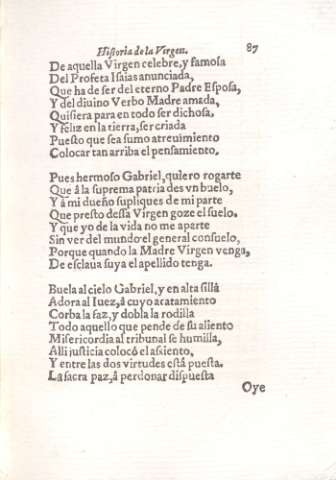 Historia de la Virgen. 87
De aquella Virgen celebre, y famosa
Del Profeta Isaias anunciada,
Que ha de ser del eterno Padre Esposa,
Y del diuino Verbo Madre amada,
Quisiera para en todo ser dichosa,
Y feliz en la tierra, ser criada
Puesto que sea sumo atreuimiento
Colocar tan arriba el pensamiento.
Pues hermoso Gabriel, quiero rogarte
Que â la suprema patria des vn buelo,
Y â mi dueño supliques de mi parte
Que presto dessa Virgen goze el suelo.
Y que yo de la vida no me aparte
Sin ver del mundo el general consuelo,
Porque quando la Madre Virgen venga,
De esclaua suya el apellido tenga.
Buela al cielo Gabriel, y en alta silla
Adora al Iuez, â cuyo acatamiento
Corba la faz, y dobla la rodilla
Todo aquello que pende de su aliento
Misericordia al tribunal se humilla,
Alli justicia colocó el assiento,
Y entre las dos virtudes està puesta.
La sacra paz, â perdonar dispuesta
Oye